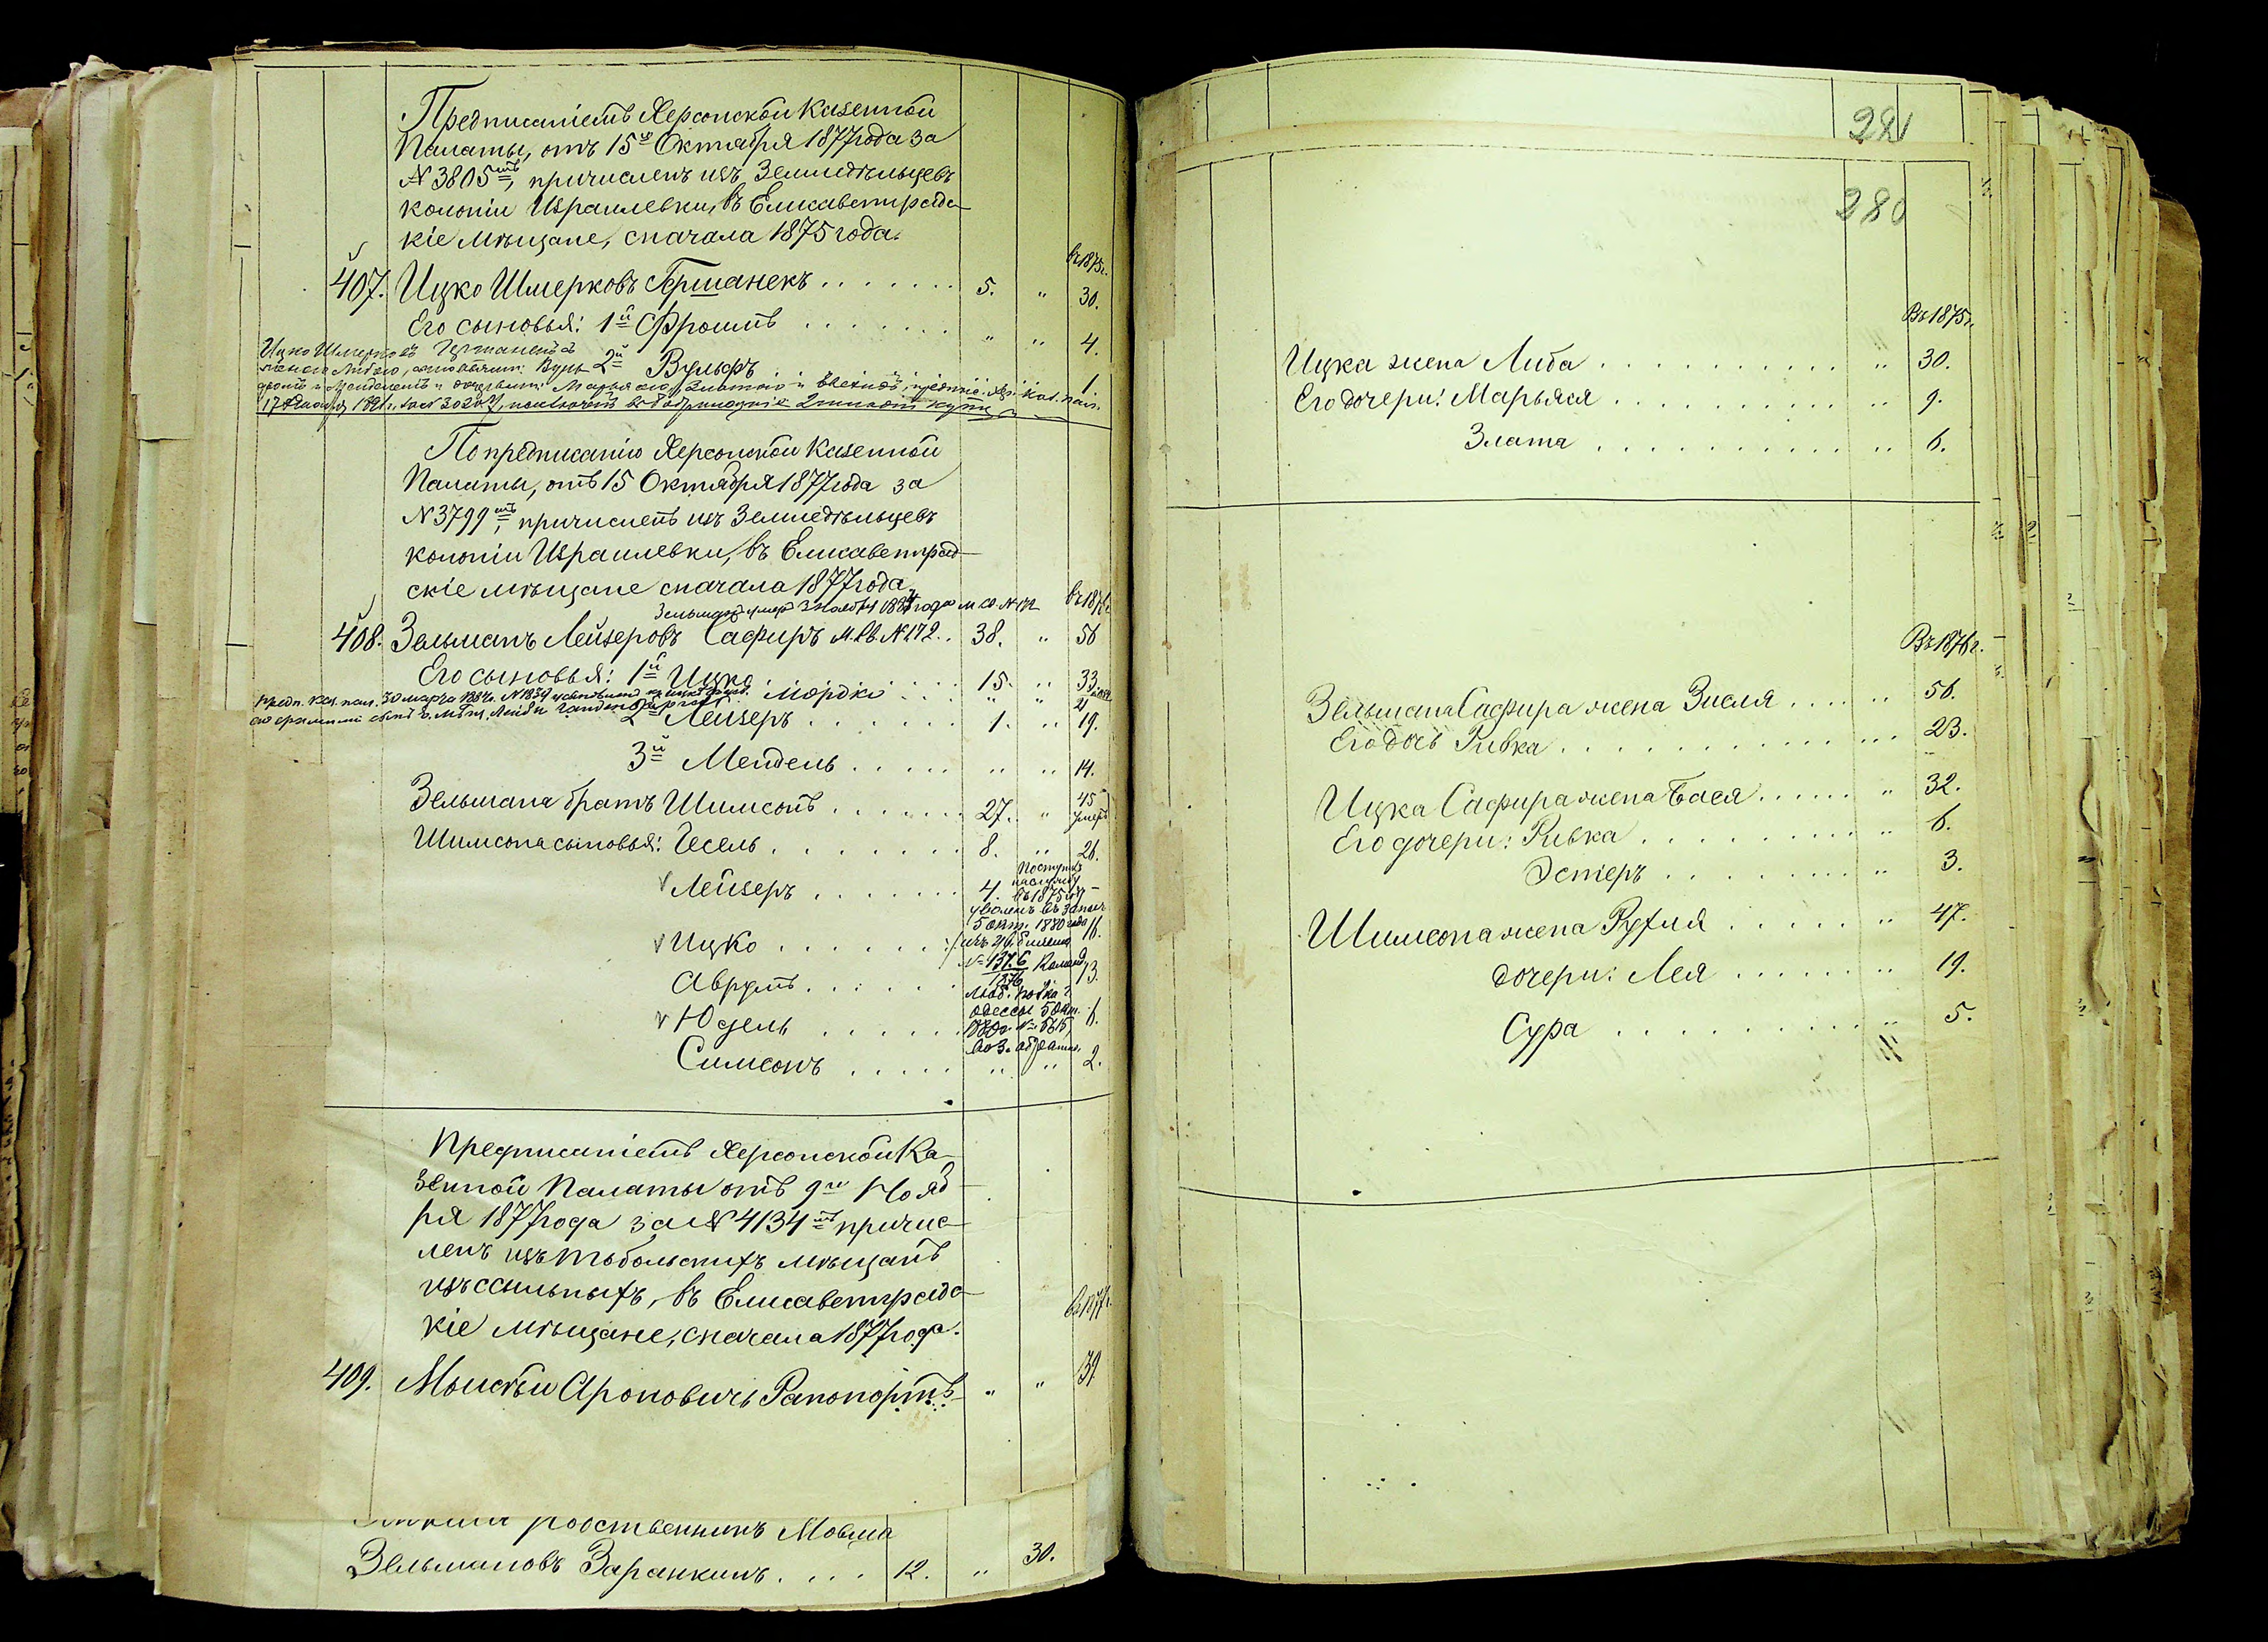 Предписаніемъ Херсонской Казенной
Палаты, отъ 15го Октября 1877 года за
№ 3805мъ, причисленъ изъ Земледѣльцевъ
колоніи Израилевки, въ Елисаветградс-
кіе мѣщане, сначала 1875 года.
въ 1875 г.
407. Ицко Шмерковъ Германекъ . . . . . . . 5. „ 30.
Его сыновья: 1й Фроимъ . . . . . . . „ „ 4.
Ицко Шмерковъ Германекъ
2й Вульфъ . . . . . . . 1.
По предписанію Херсонской Казенной
Палаты, отъ 15 Октября 1877 года за
№ 3799мъ, причисленъ изъ Земледѣльцевъ
колоніи Израилевки, въ Елисаветград-
скіе мѣщане сначала 1877 года.
Зельманъ умеръ 3 Ноября года
408. Зельманъ Лейзеровъ Сафиръ М. св. № 172. . 38. „ 56
Его сыновья: 1й Ицко . . . . . 15. „ 33.
Предп. Каз. пал. 30 марта № 1839 Мордко . . . „ „ 21
2й Лейзеръ . . . . . . . 1. „ 19.
3й Мендель . . . . . „ „ 14.
Зельмана братъ Шимсонъ . . . . . . 27. „ 45 умеръ
Шимсона сыновья: Іесель . . . . . . . 8. „ 26.
Лейзеръ . . . . . . . 4. Поступ. на службу въ 1875 году –
уволенъ въ запас
5 окт. 1880 года
Ицко . . . . . . . 16.
Аврумъ . . . . . . 13.
Юдель . . . . . . 6.
Одессы 5 окт.
Симсонъ . . . . . „ „ 2.
Предписаніемъ Херсонской Ка-
зенной Палаты отъ 9го Нояб-
ря 1877 года за № 4134мъ причис-
ленъ изъ Тобольскихъ мѣщанъ
изъ ссыльныхъ, въ Елисаветградс-
кіе мѣщане, сначала 1877 года.
въ 1877 г.
409. Моисѣй Ароновичъ Рапопортъ „ „ 39.
родственникъ Мовша
Зельмановъ Заранкинъ . . . . 12. „ 30.
281
280
Въ 1875 г.
Ицка жена Либа . . . . . . . . . . „ 30.
Его дочери: Марьяся . . . . . . . . . . „ 9.
Злата . . . . . . . . . . „ 6.
Въ 1876 г.
Зельмана Сафира жена Зисля . . . . „ 56.
Его дочь Ривка . . . . . . . . . . . . 23.
Ицка Сафира жена Бася . . . . . . „ 32.
Его дочери: Ривка . . . . . . . . . „ 6.
Эстеръ . . . . . . . „ 3.
Шимсона жена Рухля . . . . . . „ 47.
дочери: Лея . . . . . . „ 19.
Сура . . . . . . . . . . „ 5.